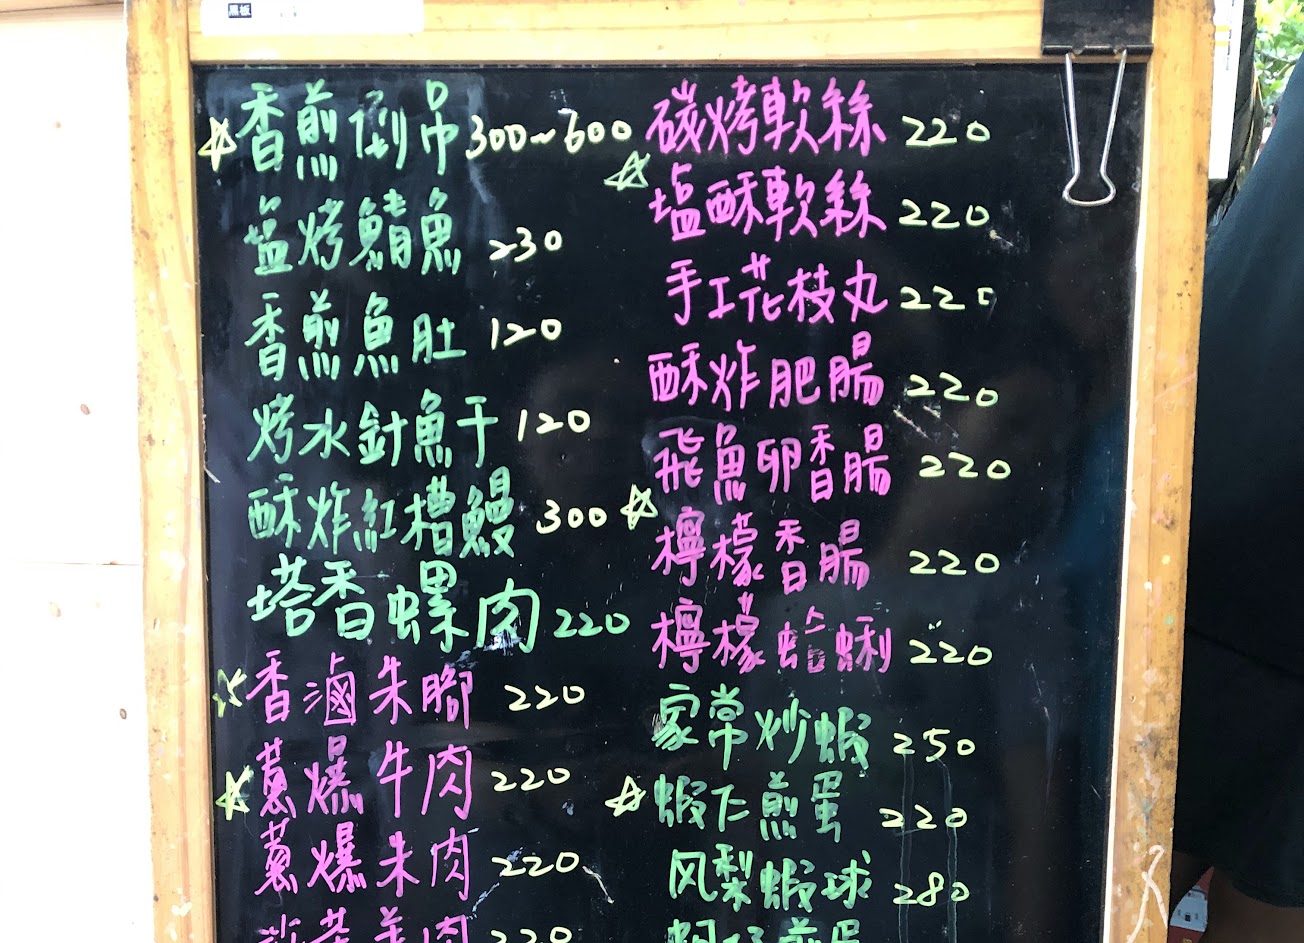 黑板
香煎倒吊 300~600
塩烤鯖魚 230
香煎魚肚 120
烤水針魚干 120
酥炸紅槽鰻 300
塔香螺肉 220
香滷朱腳 220
蔥爆牛肉 220
蔥爆朱肉 220
沙茶羊肉 220
碳烤軟絲 220
塩酥軟絲 220
手工花枝丸 220
酥炸肥腸 220
飛魚卵香腸 220
檸檬香腸 220
檸檬蛤蜊 220
家常炒蝦 250
蝦仁煎蛋 220
风梨蝦球 280
煎蛋